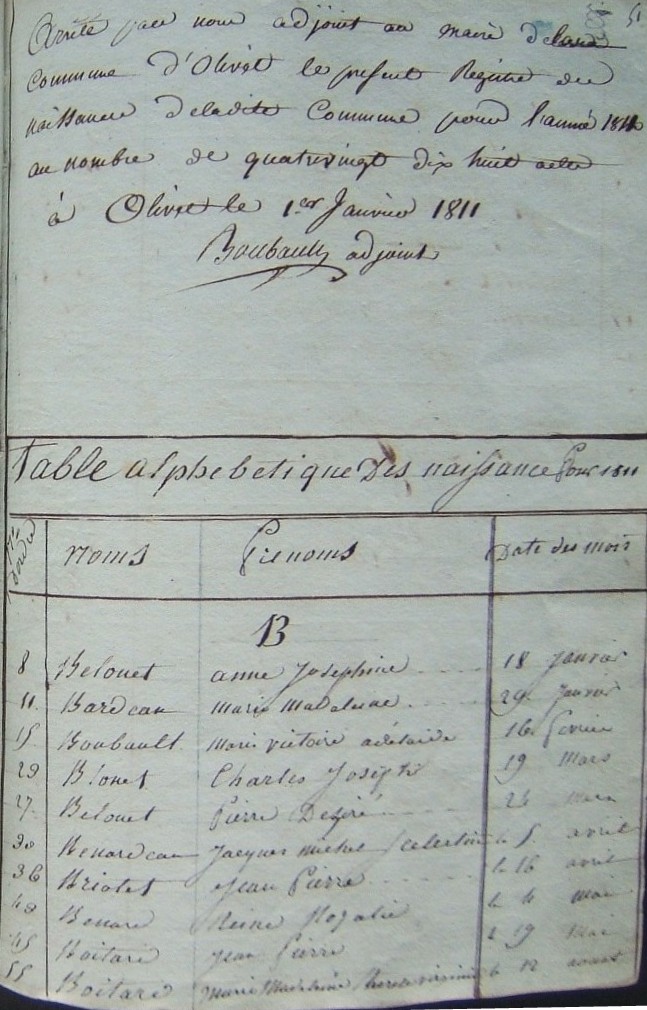 51
Arrêté par nous adjoint au maire de la
Commune d'Olivet le present Registre des
naissances de ladite Commune pour l'année 1811
au nombre de quatrevingt dix huit actes
à Olivet le 1er Janvier 1811
Boubault adjoint
Table alphebetique Des naissance Pour 1811
Noms Prenoms Date des mois
B
8 Belouet anne Josephine 18 Janvier
11 Bardeau marie madeleine 29 Janvier
15 Boubault marie victoire adélaide 16 fevrier
Blouet Charles Joseph 19 Mars
27 Belouet Pierre Desiré mars
30 Benardeau Jacques michel Celestin le 5 avril
36 Briolet Jean Pierre le 16 avril
Benard Reine Rozalie le 6 mai
45 Boitard Jean Pierre le 19 Mai
55 Boitard Marie Madeleine le 12 aoust